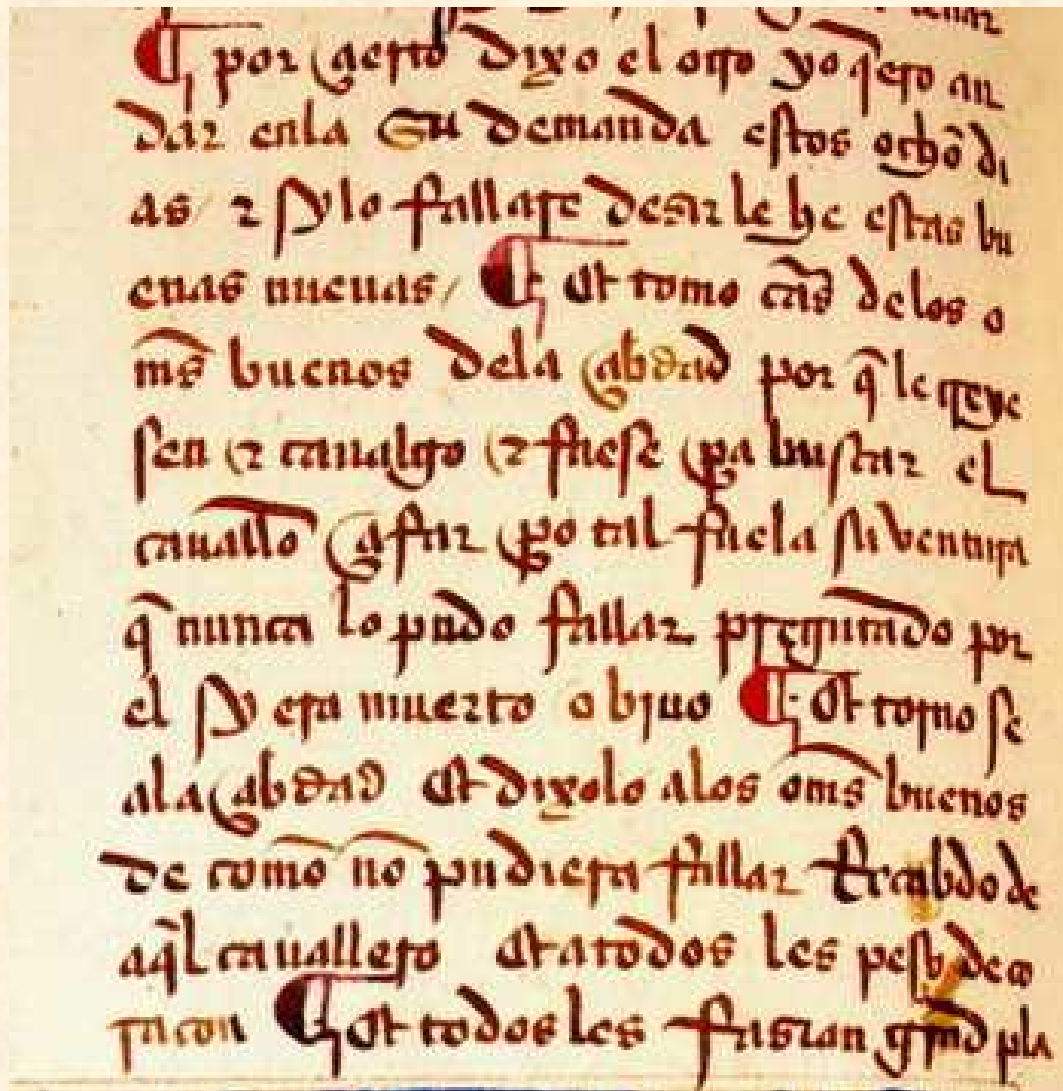 ¶ por çierto dixo el otro yo q̃ero an
dar enla Su demanda estos ocho di
as / ⁊ sy lo fallare desir le he estas bu
enas nueuas / ¶ Et tomo delos o
ms̃ buenos dela çabdad por q̃ le creye
sen ⁊ caualgo ⁊ fuese pa buscar el
cauallo çafar po tal fue la su ventura
q̃ nunca lo pudo fallar pregutado por
el sy era muerto o biuo ¶ Et torno se
ala çabdad Et dixolo alos oms̃ buenos
de como no pudiera fallar Recabdo de
aq̃l cauallero Et a todos les peso de co
raçon ¶ Et todos les fasian grand pla